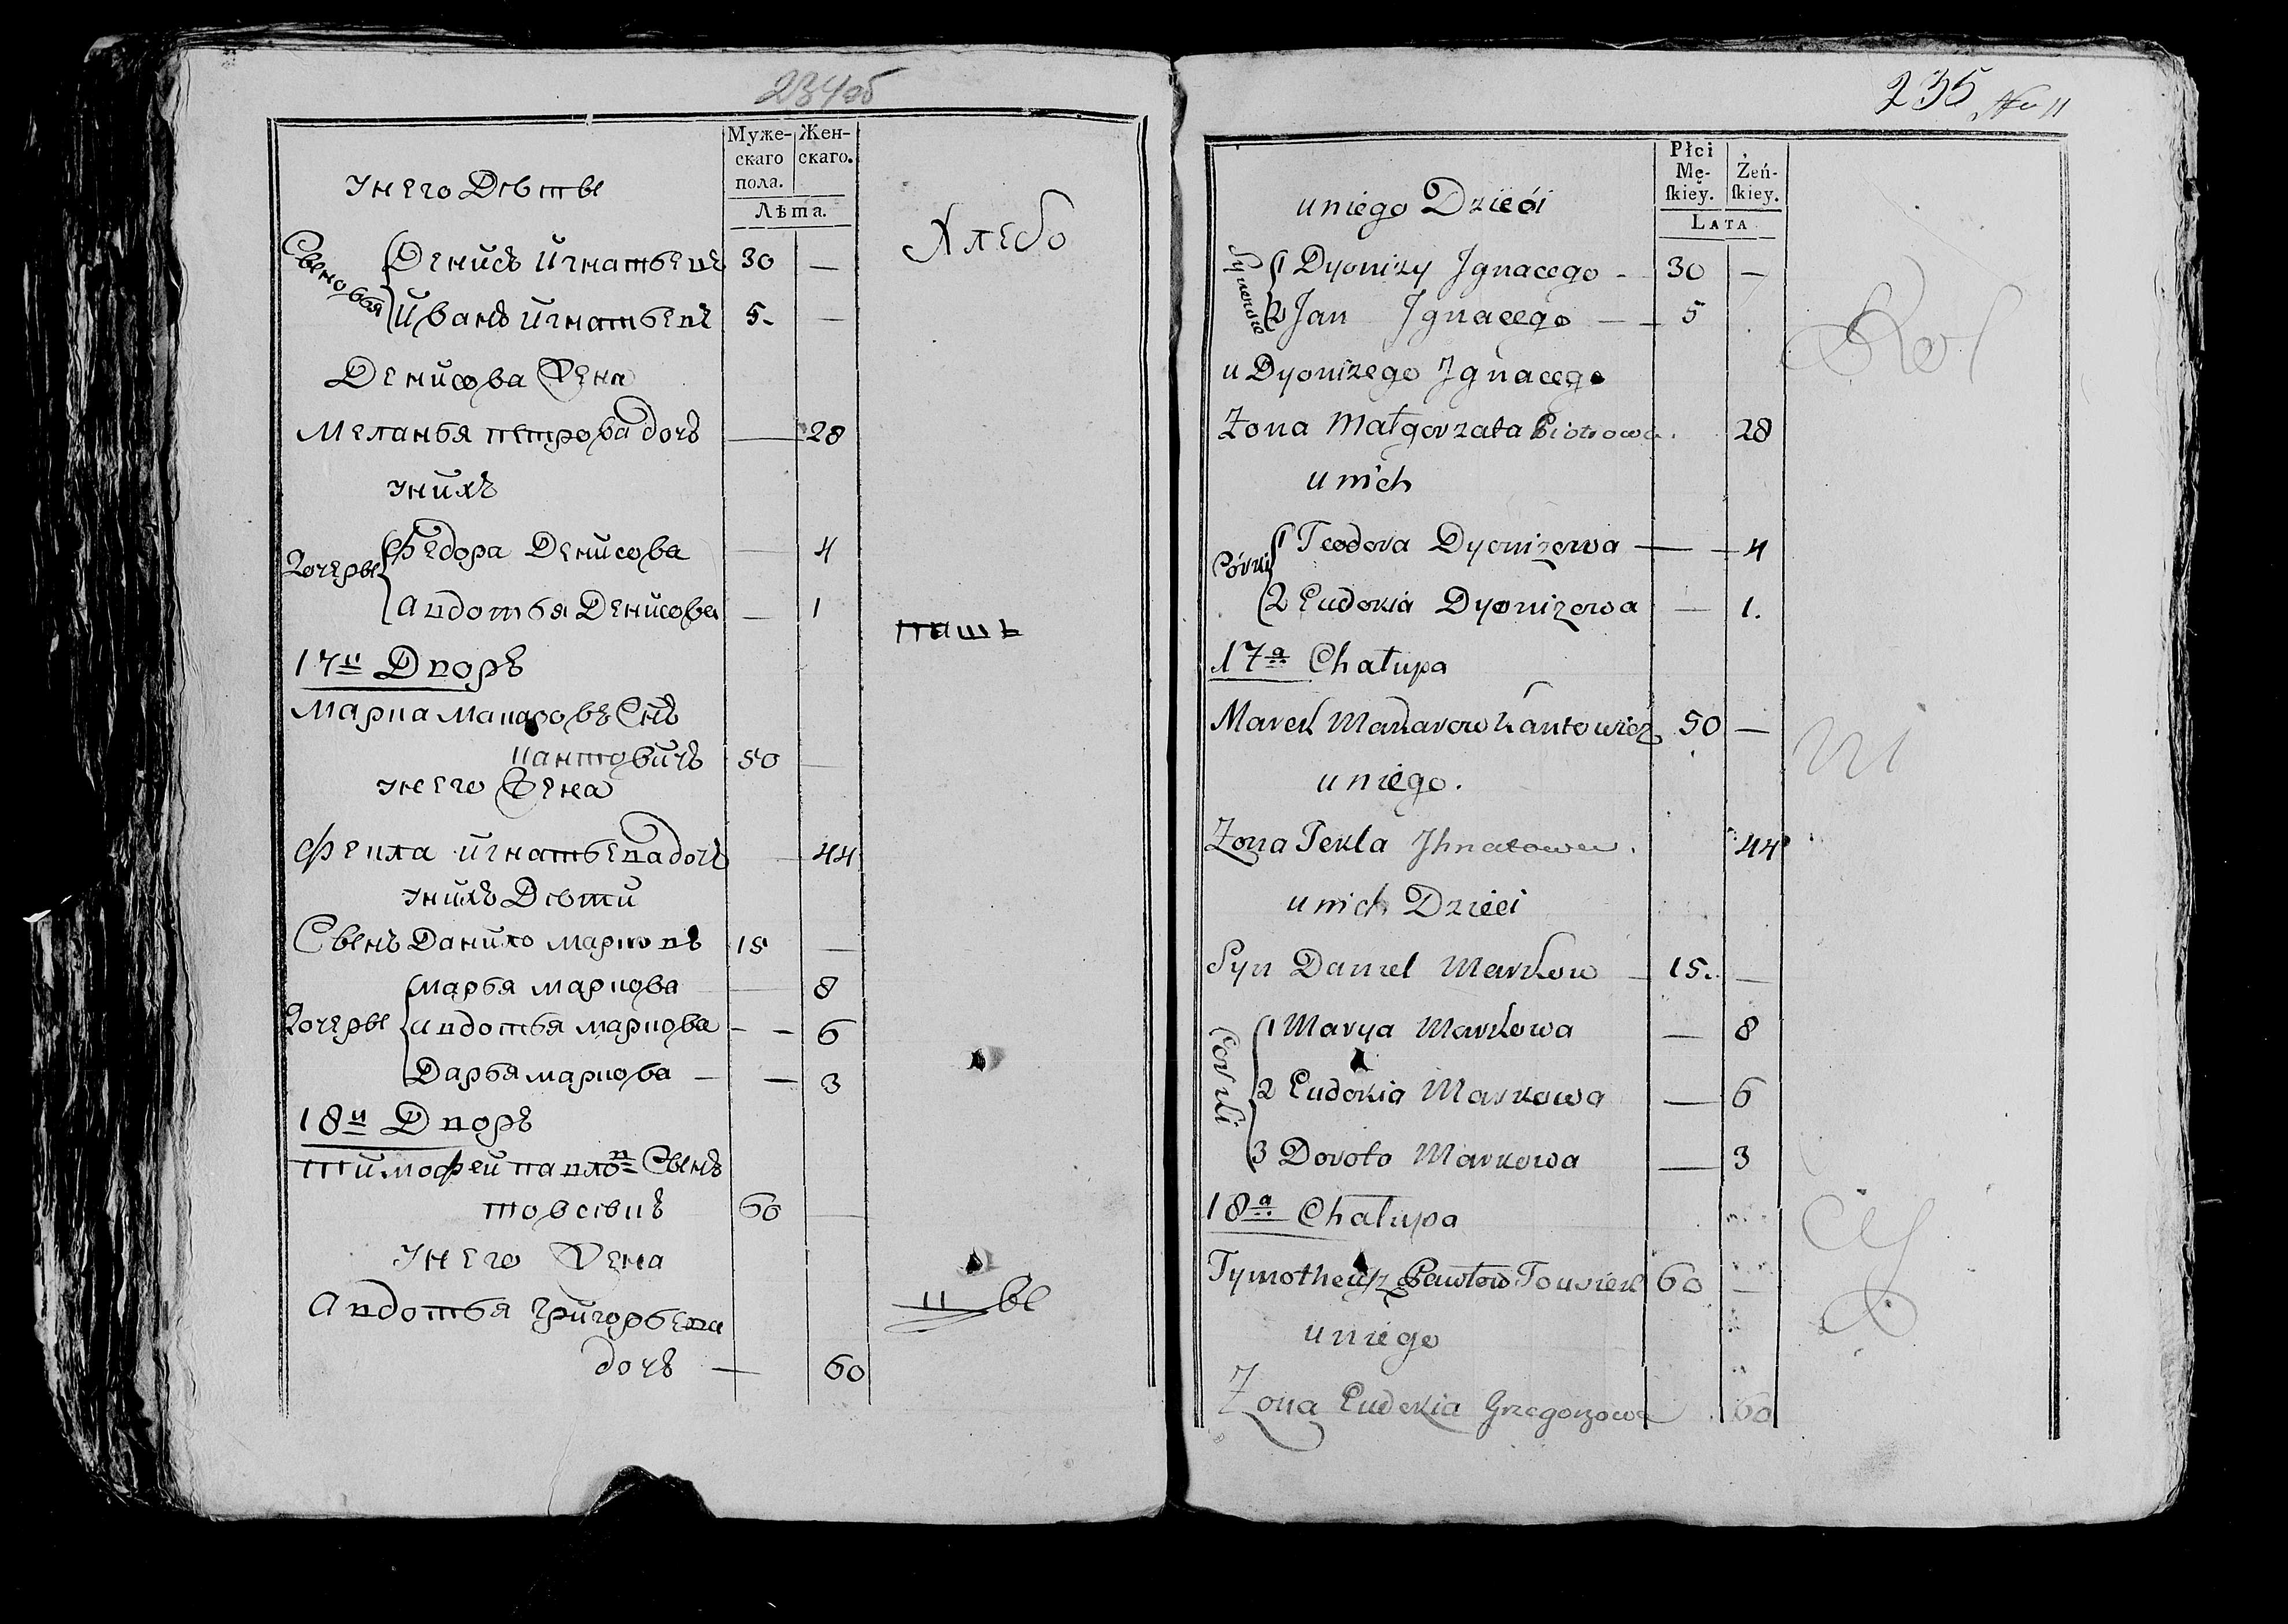 234об
Муже-
скаго
пола.
Жен-
скаго.
Лѣта.
унего Дѣты
Хлебо
Сыновья
Денисъ Игнатьевъ 30 —
Иванъ Игнатьевъ 5. —
Денисова Жена
Меланья петрова дочъ — 28
унихъ
дочеры
Федора Денисова — 4
Авдотья Денисова — 1
17й Дворъ
Марка Макаровъ Снъ
кантовичъ 50 —
унего Жена
Фекла Игнатьева дочъ — 44
унихъ Дѣти
Сынъ Данило Марковъ 15 —
дочеры
Марья Маркова — 8
Авдотья Маркова — — 6
Дарья Маркова — — 3
18й Дворъ
тимофей павловъ Сынъ
60 —
унего Жена
Авдотья Григорьева
дочъ — 60
235 No 11
Płci
Mę-
skiey.
Żeń-
skiey.
LATA
uniego Dzieci
Synowie
1 Dyonizy Ignacego - 30 —
2 Jan Ignacego — 5
u Dyonizego Ignacego
Zona Małgorzata Piotrowa. 28
u nich
Córki
1 Teodora Dyonizowa — — 4
2 Eudokia Dyonizowa — 1.
17a Chałupa
Marek Makarow Kantowicz 50 —
u niego.
Zona Tekla Ihnatowa. 44
u nich Dzieci
Syn Daniel Markow — 15. —
Corki
1 Marya Markowa — 8
2 Eudokia Markowa — 6
3 Dorota Markowa — 3
18a Chałupa
Tymotheusz Pawłow 60 —
u niego
Zona Eudokia Grzegorzowa 60